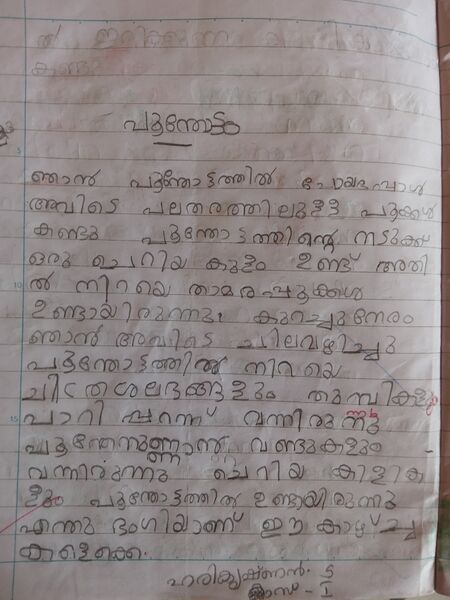 പൂന്തോട്ടം
ഞാൻ പൂന്തോട്ടത്തിൽ പോയപ്പോൾ
അവിടെ പലതരത്തിലുള്ള പൂക്കൾ
കണ്ടു പൂന്തോട്ടത്തിന്റെ നടുക്ക്
ഒരു ചെറിയ കുളം ഉണ്ട് അതി
ൽ നിറയെ താമരപ്പൂക്കൾ
ഉണ്ടായിരുന്നു. കുറച്ചുനേരം
ഞാൻ അവിടെ ചിലവഴിച്ചു
പൂന്തോട്ടത്തിൽ നിറയെ
ചിത്രശലഭങ്ങളും തുമ്പികളും
പാറി പറന്ന് വന്നിരുന്നു
പൂന്തേനുണ്ണാൻ വണ്ടുകളും
വന്നിരുന്നു ചെറിയ കിളിക
ളും പൂന്തോട്ടത്തിൽ ഉണ്ടായിരുന്നു
എന്തു ഭംഗിയാണ് ഈ കാഴ്ച്ച
കളൊക്കെ.
ഹരികൃഷ്ണൻ. S
ക്ലാസ് - I